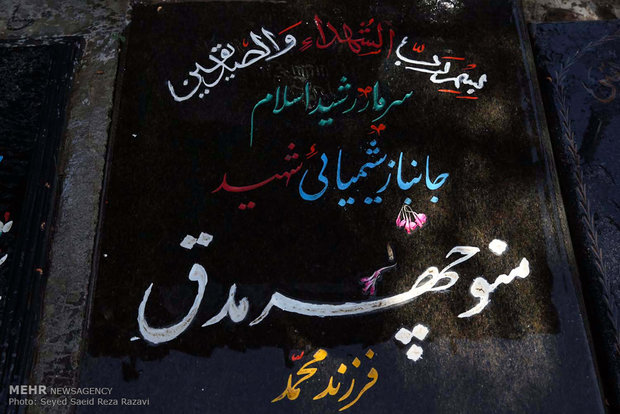 بسم ربّ الشُهداء وَالصِدیقین
سردار رشید اسلام
جانباز شیمیائی شهید
منوچهر مدق
فرزند محمّد
MEHR NEWSAGENCY
Photo: Seyed Saeid Reza Razavi